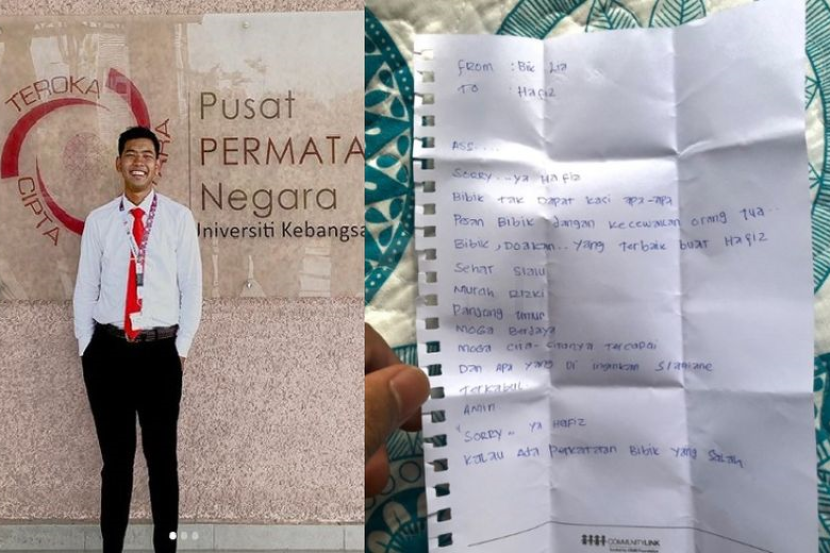 TEROKA
CIPTA
Pusat
PERMATA
Negara
Universiti Kebangsa
From : Bik Lia
To : Hafiz
Ass....
Sorry...ya Hafiz
Bibik tak Dapat kasi apa-apa
Pesan Bibik jangan kecewakan orang tua..
Bibik, Doakan.. yang terbaik buat Hafiz
Sehat Slalu
Murah Rizki
Panjang Umur
Moga Berjaya
Moga cita-citanya Tercapai
Dan apa yang Di inginkan Slamane
Terkabul
Amin
"Sorry.. ya Hafiz
Kalau Ada Perkataan Bibik yang Salah
COMMUNITYLINK